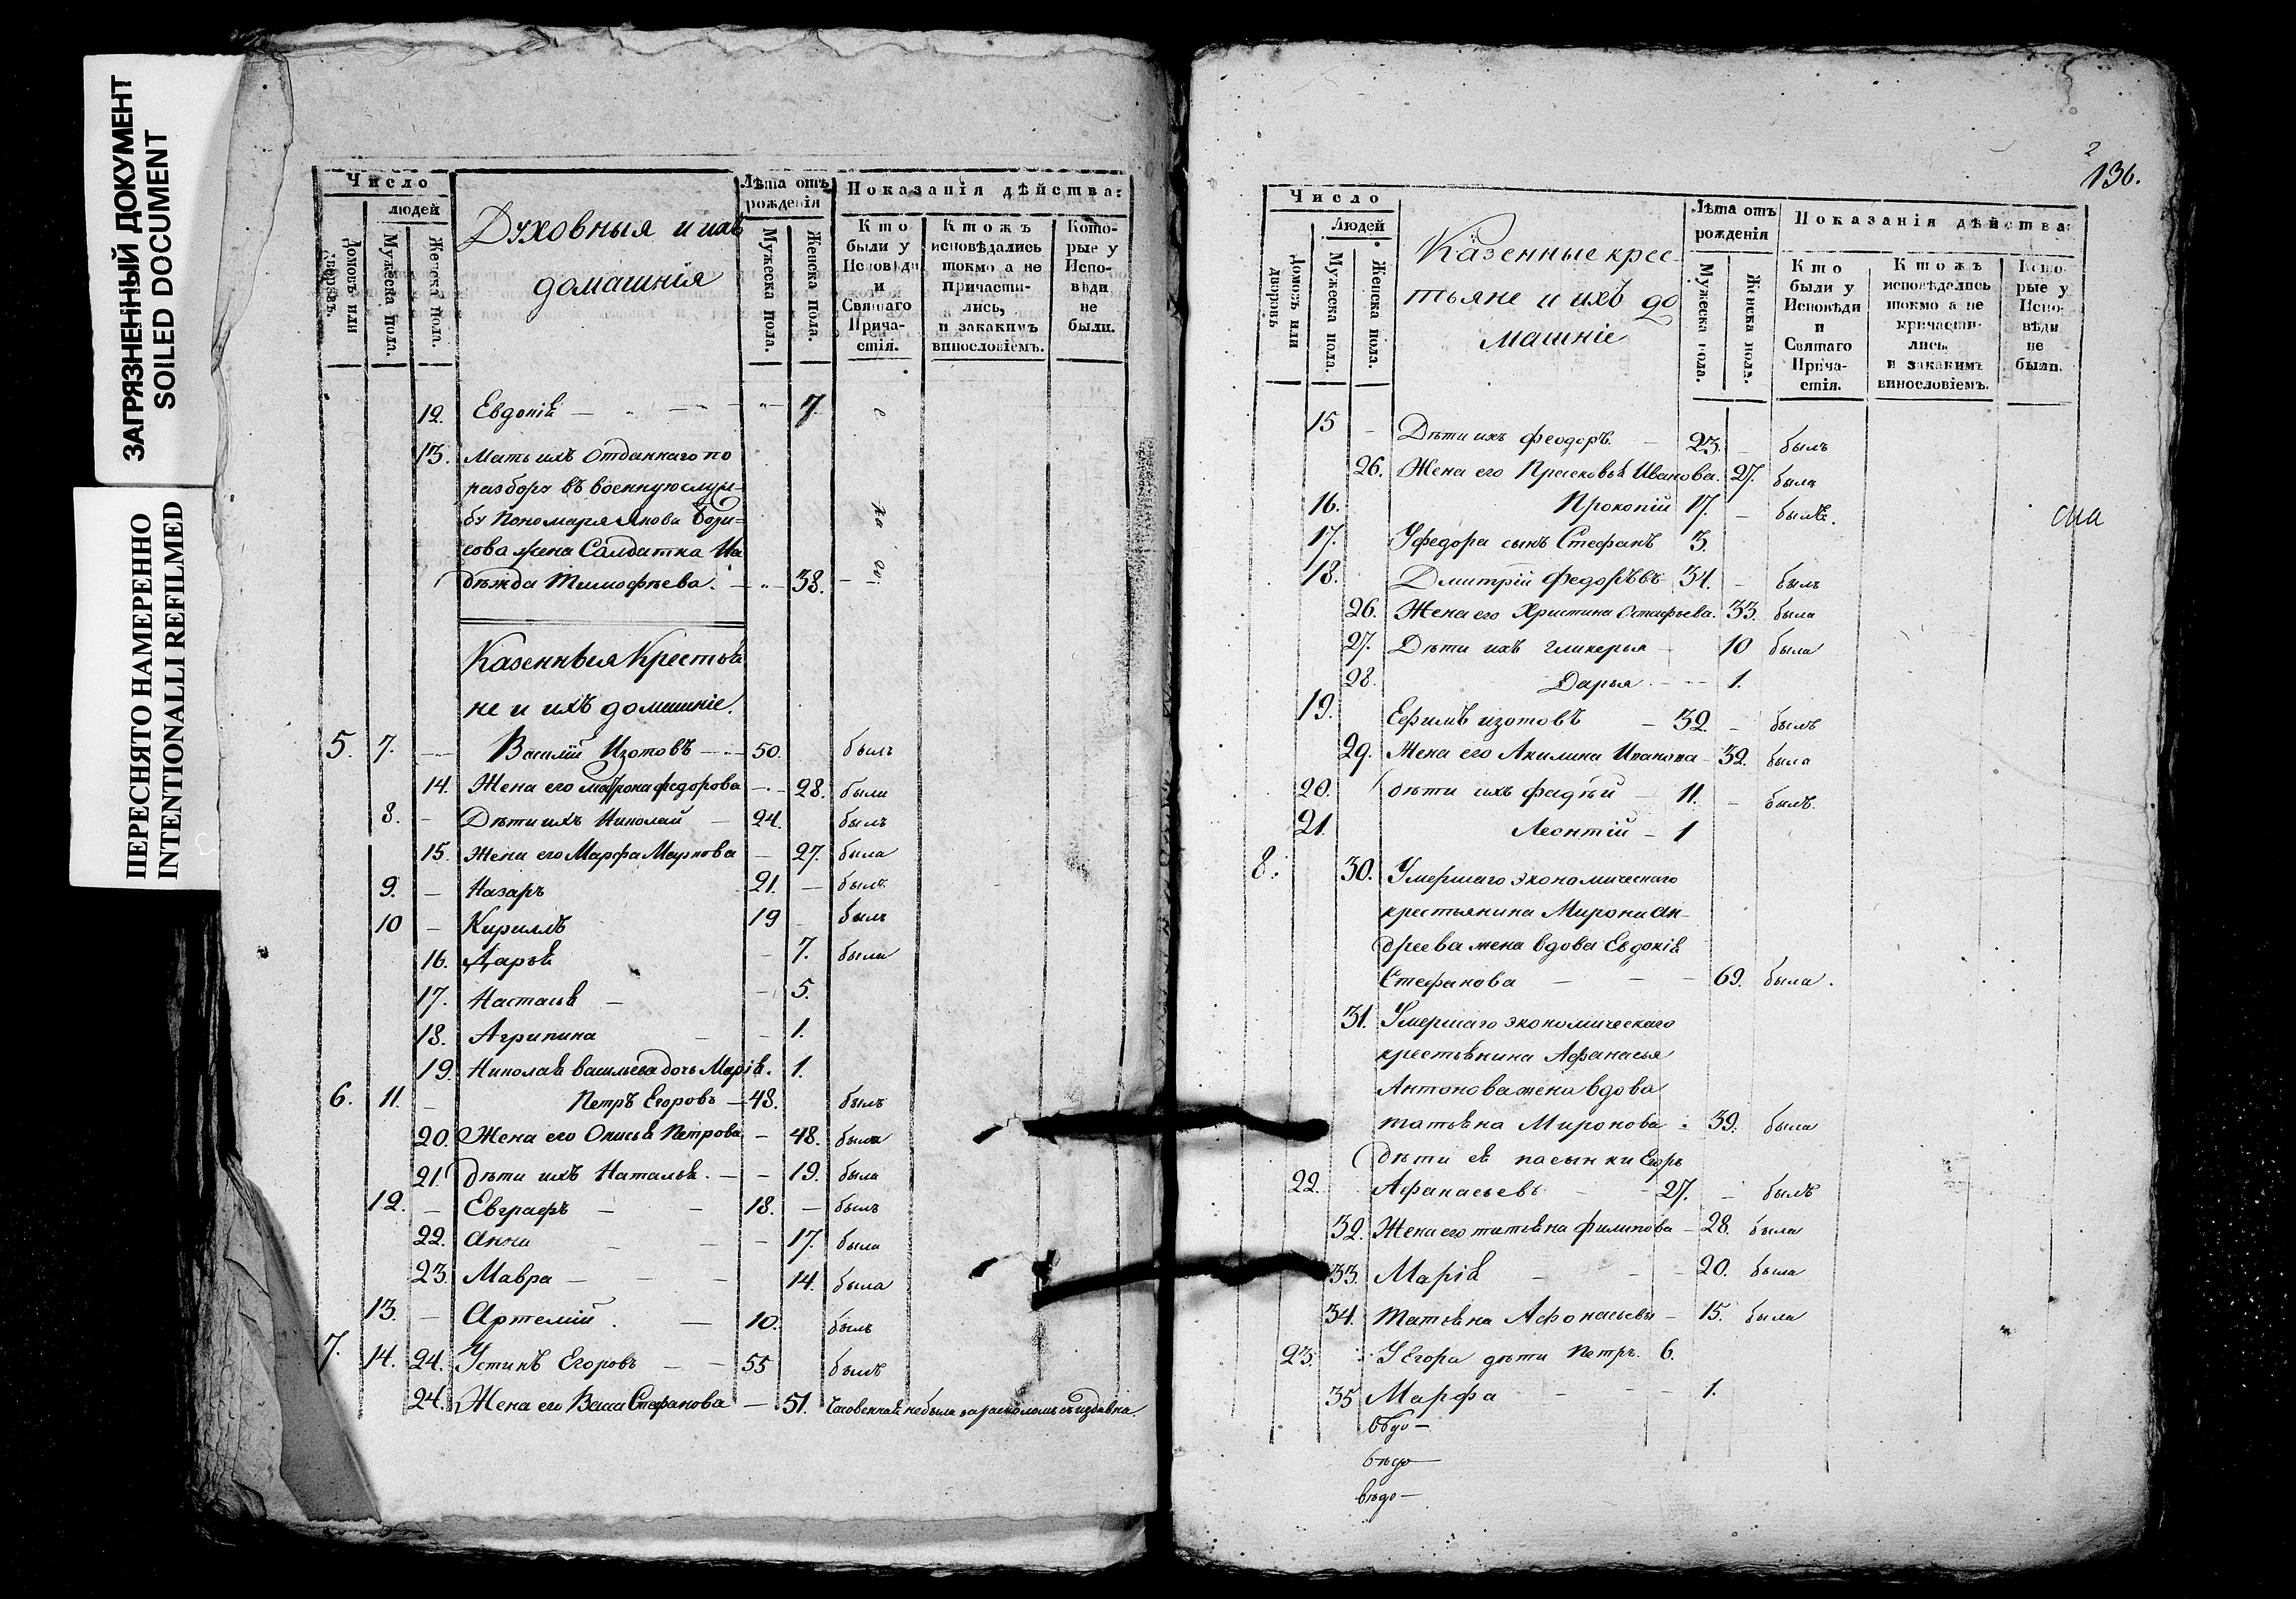 ЗАГРЯЗНЕННЫЙ ДОКУМЕНТ
SOILED DOCUMENT
ПЕРЕСНЯТО НАМЕРЕННО
INTENTIONALLI REFILMED
Число
людей
Домовъ или дворовъ.
Мужеска пола.
Женска пола.
Духовныя и ихъ
домашнія
Лѣта отъ рожденія
Мужеска пола.
Женска пола.
Показанія дѣйства:
Кто были у Исповѣди и Святаго Прича- стія.
Ктожъ исповѣдались токмо а не причасти- лись, и закакимъ винословіемъ.
Кото- рые у Испо- вѣди не были.
12. Евдокія 7
13. Мать ихъ Отданнаго по
разбору въ военную служ-
бу Пономаря Якова Бори-
сова жена Салдатка На
дѣжда Тимофѣева. 38.
Казенныя Крестья
не и ихъ домашніе.
5. 7. Василій Изотовъ 50. былъ
14. Жена его Матрона федорова 28. была
8. Дѣти ихъ Николай 24. былъ
15. Жена его Марфа Маркова 27. была
9. Назаръ 21. былъ
10 Кириллъ 19 былъ
16. Дарья 7. была
17. Настасья 5.
18. Агрипина 1.
19. Николая васильева дочь Марія. 1.
6. 11. Петръ Егоровъ 48. былъ
20. Жена его Онисья Петрова 48. была
21. дѣти ихъ Наталья. 19. была
12. Евграфъ 18. былъ
22. Анна 17. была
23. Мавра 14. была
13. Артемій. 10. былъ
7. 14. 24. Устинъ Егоровъ 55 былъ
24. Жена его Васса Стефанова 51. Часовенная не была за расколомъ съ издавна.
2
136.
Число
Людей
Домовъ или дворовъ
Мужеска пола.
Женска пола.
Казенные крес-
тьяне и ихъ до
машніе
Лѣта отъ рожденія
Мужеска пола.
Женска пола.
Показанія дѣйства:
Кто были у Исповѣди и Святаго Прича- стія.
Ктожъ исповѣдались токмо а не причасти- лись, и закакимъ винословіемъ.
Кото- рые у Испо- вѣди не были.
15 Дѣти ихъ феодоръ. 23. былъ
26. Жена его Прасковья Иванова. 27. была
16. Прокопій 17. былъ.
17. У федора сынъ Стефанъ 3.
18. Дмитрій федоровъ 34. былъ
26. Жена его Христина Остафьева. 33. была
27. Дѣти ихъ гликерья 10 была
28. Дарья 1.
19. Ефимъ изотовъ 32. былъ
29. Жена его Акилина Иванова 32. была
20. дѣти ихъ фадѣй 11. былъ.
21. Леонтій 1
8. 30. Умершаго экономическаго
крестьянина Мирона Ан-
дреева жена вдова Евдокія
Стефанова 69. была.
31. Умершаго экономическаго
крестьянина Афанасья
Антонова жена вдова
татьяна Миронова 39. была
дѣти ея пасынки Егоръ
22. Афанасьевъ 27. былъ
32. Жена его татьяна филипова 28. была
33. Марія 20. была
34. Татьяна Афонасьева 15. была
23. У Егора дѣти Петръ. 6.
35 Марфа 1.